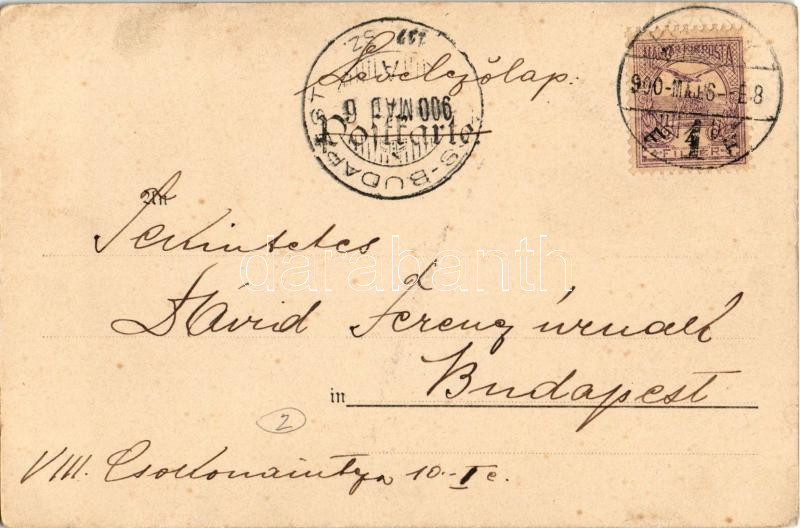 Levelezőlap.
Postkarte
900 MÁJ 6
S-BUDAPEST
MAGYAR KIR. POSTA
900-MÁJ. 6 - E8
FILLÉR
An
Tekintetes
Dávid Ferencz úrnak
in Budapest
2
VIII. Csokonai utza 10. I e.
darabanth